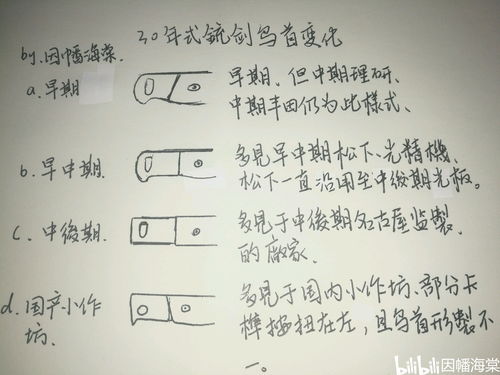 30年式銃剑鸟首变化
by.因幡海棠.
a.早期
早期、但中期理研、
中期丰田仍为此様式、
b.早中期.
多見早中期松下、光精機、
松下一直沿用至中後期光板。
c.中後期.
多見于中後期名古屋监製
的廠家.
d.国产小作
坊.
多見于国内小作坊、部分卡
榫按扭在左,且鸟首形製不
一。
bilibili因幡海棠